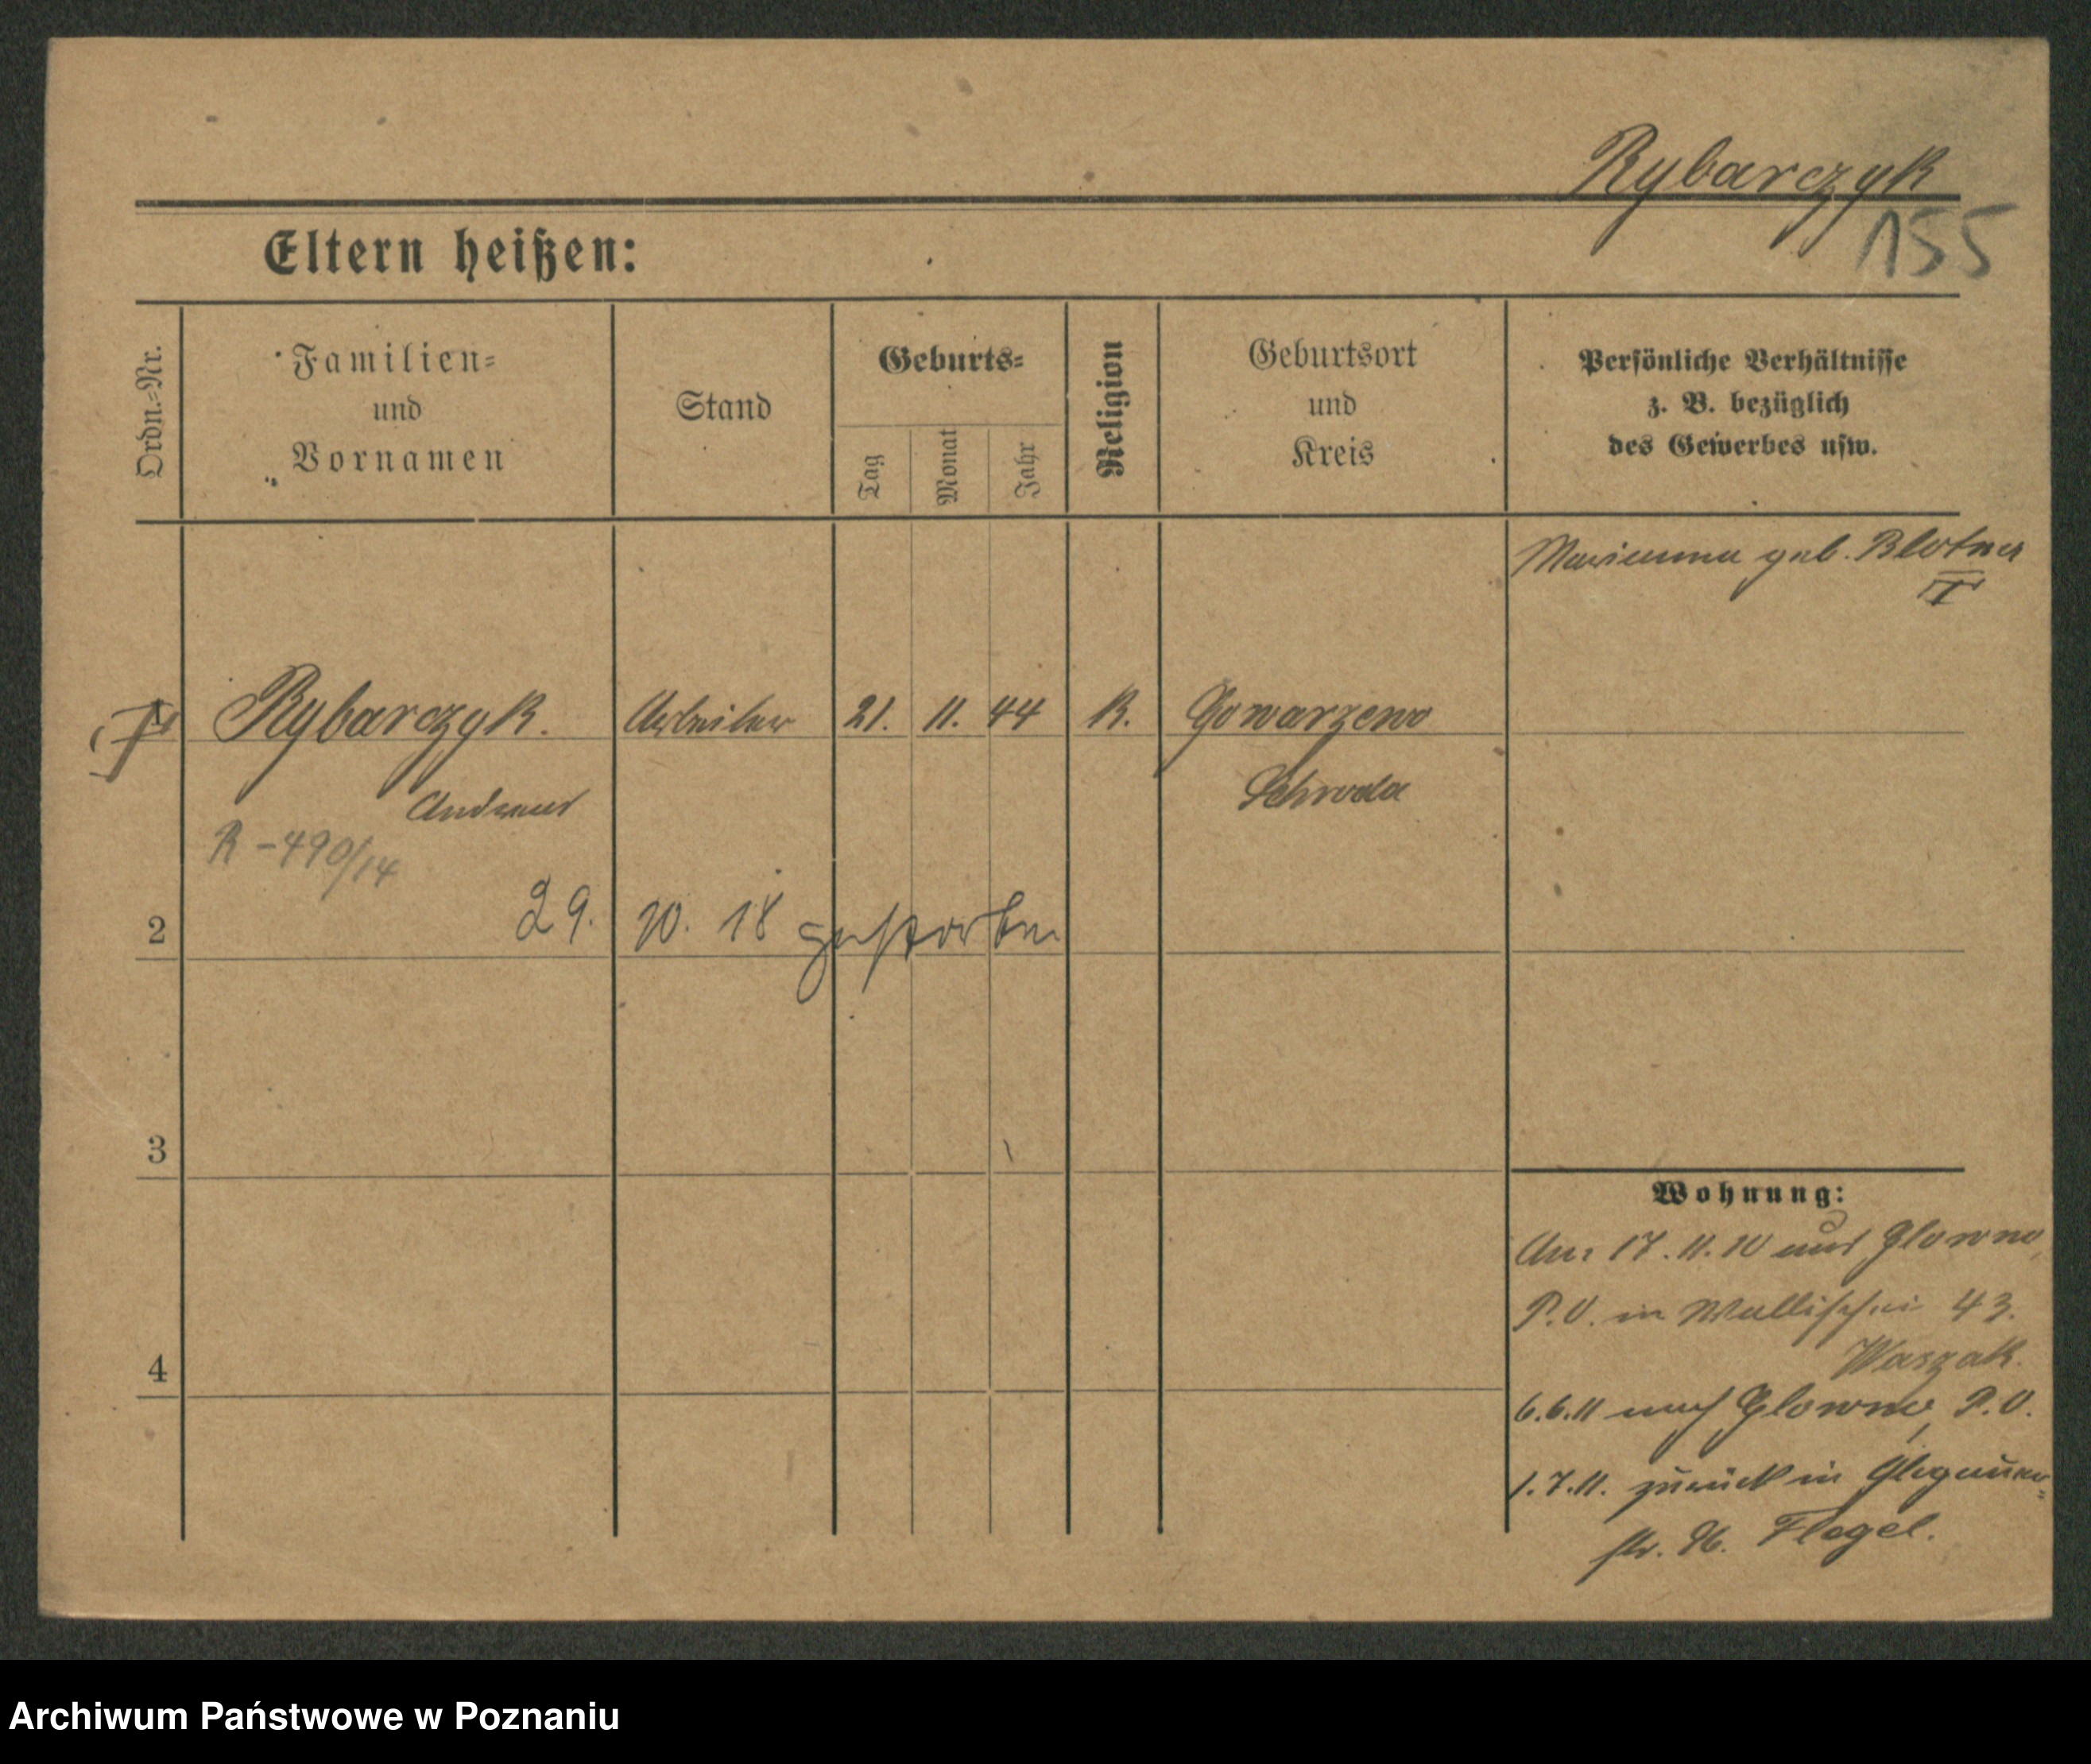 Rybarczyk
155
Eltern heißen:
Ordn.-Nr.
Familien-
und
Vornamen
Stand
Geburts-
Tag
Monat
Jahr
Religion
Geburtsort
und
Kreis
Persönliche Verhältnisse
z. B. bezüglich
des Gewerbes usw.
Marianna geb. Blotna
II
1 Rybarczyk. Arbeiter 21. 11. 44 K. Gowarzewo
Andreas Schroda
R-490/14
2 29. 10. 18 gestorben
3
4
Wohnung:
An: 17.11.10 aus Glowno,
P.O. in Wallischei 43.
Waszak.
6.6.11 nach Glowno, P.O.
1.7.11. zurück in
str. Flegel.
Archiwum Państwowe w Poznaniu